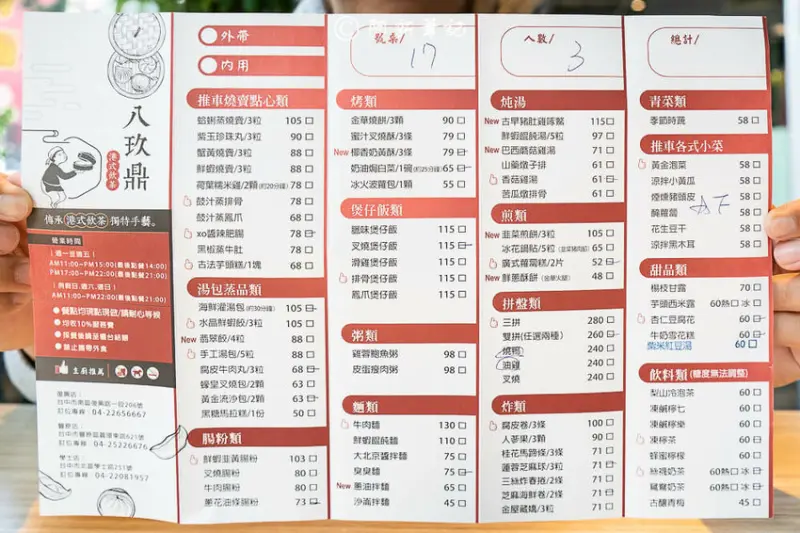 八玖鼎
港式飲茶
傳承港式飲茶獨特手藝。
營業時間
週一至週五
AM11:00~PM15:00(最後點餐14:00)
PM17:00~PM22:00(最後點餐21:00)
例假日,週六,週日
AM11:00~PM22:00(最後點餐21:00)
餐點均現點現做/請耐心等候
均收10%服務費
採餐後請至櫃台結帳
禁止攜帶外食
主廚推薦
復興店:
台中市南區復興路一段206號
訂位專線:04-22656667
豐原店:
訂位專線:04-25226676
學士店:
台中市北區學士路257號
訂位專線:04-22081957
外帶
內用
推車燒賣點心類
蛤蜊蒸燒賣/3粒 105
紫玉珍珠丸/3粒 90
蟹黃燒賣/3粒 88
鮮蝦燒賣/3粒 88
荷葉糯米雞/2顆(約20分鐘) 78
豉汁蒸排骨 78
豉汁蒸鳳爪 68
xo醬辣肥腸 78
黑椒蒸牛肚 78
古法芋頭糕/1塊 68
湯包蒸品類
海鮮灌湯包(約30分鐘) 105
水晶鮮蝦餃/3粒 105
New 翡翠餃/4粒 88
手工湯包/5粒 88
腐皮牛肉丸/3粒 68
蠔皇叉燒包/2顆 63
黃金流沙包/2顆 63
黑糖馬拉糕/1份 50
腸粉類
鮮蝦韭黃腸粉 103
叉燒腸粉 80
牛肉腸粉 80
蔥花油條腸粉 73
號桌/ 17
烤類
金華燒餅/3顆 90
蜜汁叉燒酥/3條 79
New 椰香奶黃酥/3條 79
奶油焗白菜/1碗(約25分鐘) 65
冰火波蘿包/1顆 55
煲仔飯類
臘味煲仔飯 115
叉燒煲仔飯 115
滑雞煲仔飯 115
排骨煲仔飯 115
鳳爪煲仔飯 115
粥類
雞蓉鮑魚粥 98
皮蛋瘦肉粥 98
麵類
牛肉麵 130
鮮蝦餛飩麵 110
大北京醬拌麵 75
臭臭麵 75
New 蔥油拌麵 65
沙嗲拌麵 45
人數/ 3
炖湯
New 古早豬肚雞啄鴞 115
鮮蝦餛飩湯/5粒 97
New 巴西蘑菇雞湯 71
山藥燉子排 61
香菇雞湯 61
苦瓜燉排骨 61
煎類
New 韭菜煎餅/3粒 105
冰花鍋貼/5粒(韭菜豬肉餡) 65
廣式蘿蔔糕/2片 52
New 鮮蔥酥餅(金華火腿) 48
拼盤類
三拼 280
雙拼(任選兩種) 260
燒鴨 240
油雞 240
叉燒 240
炸類
腐皮卷/3條 100
人蔘果/3顆 90
桂花馬蹄條/3條 71
蓮蓉芝麻球/3粒 71
三絲炸春捲/2條 71
芝麻海鮮卷/2條 71
金屋藏嬌/3粒 71
總計/
青菜類
季節時蔬 58
推車各式小菜
黃金泡菜 58
涼拌小黃瓜 58
煙燻豬頭皮 58
醃蘿蔔 58
花生豆干 58
涼拌黑木耳 58
甜品類
楊枝甘露 70
芋頭西米露 60熱 冰
杏仁豆腐花 60
牛奶雪花糕 60
紫米紅豆湯 60
飲料類(糖度無法調整)
梨山冷泡茶 60
凍鹹檸七 60
凍鹹檸樂 60
凍檸茶 60
蜂蜜檸檬 60
絲襪奶茶 60熱 冰
鴛鴦奶茶 60熱 冰
古釀青梅 45